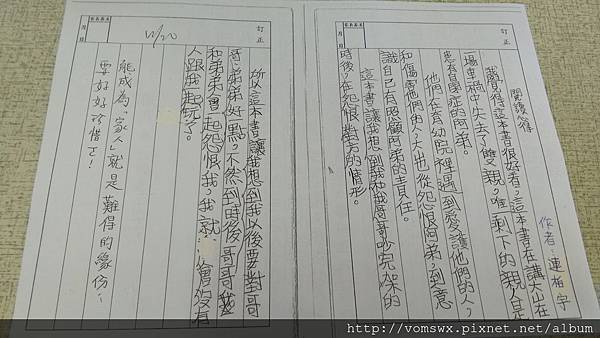 訂正
月 日
閱讀心得
作者：連柏宇
我覺得這本書很好看，這本書在讓大山在
一場車禍中失去了雙親，唯剩下的親人是
患有自閉症的阿弟。
他們在育幼院裡遇到愛護他們的人，
和傷害他們的人，大山從怨恨阿弟，到意
識自己有照顧阿弟的責任。
這本書讓我想到我和我哥哥吵完架的
時後，在怨恨對方的情形。
訂正
月 日
11/20
所以這本書讓我想到我以後要對哥
哥、弟弟好一點，不然到時後，哥哥
和弟弟會一起怨恨我，我就……會沒有
人跟我一起玩了。
能成為「家人」就是難得的緣份，
要好好珍惜了！
http://vomswx.pixnet.net/album